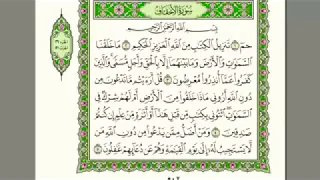 سورة الأحقاف
بسم الله الرحمن الرحيم
حم ۝١ تنزيل الكتب من الله العزيز الحكيم ۝٢ ما خلقنا
السموت والأرض وما بينهما إلا بالحق وأجل مسمى والذين
كفروا عما أنذروا معرضون ۝٣ قل أرءيتم ما تدعون من
دون الله أروني ماذا خلقوا من الأرض أم لهم شرك في
السموت ائتوني بكتب من قبل هذا أو أثرة من علم إن كنتم
صدقين ۝٤ ومن أضل ممن يدعوا من دون الله من
لا يستجيب له إلى يوم القيمة وهم عن دعائهم غفلون ۝٥
٥٠٢